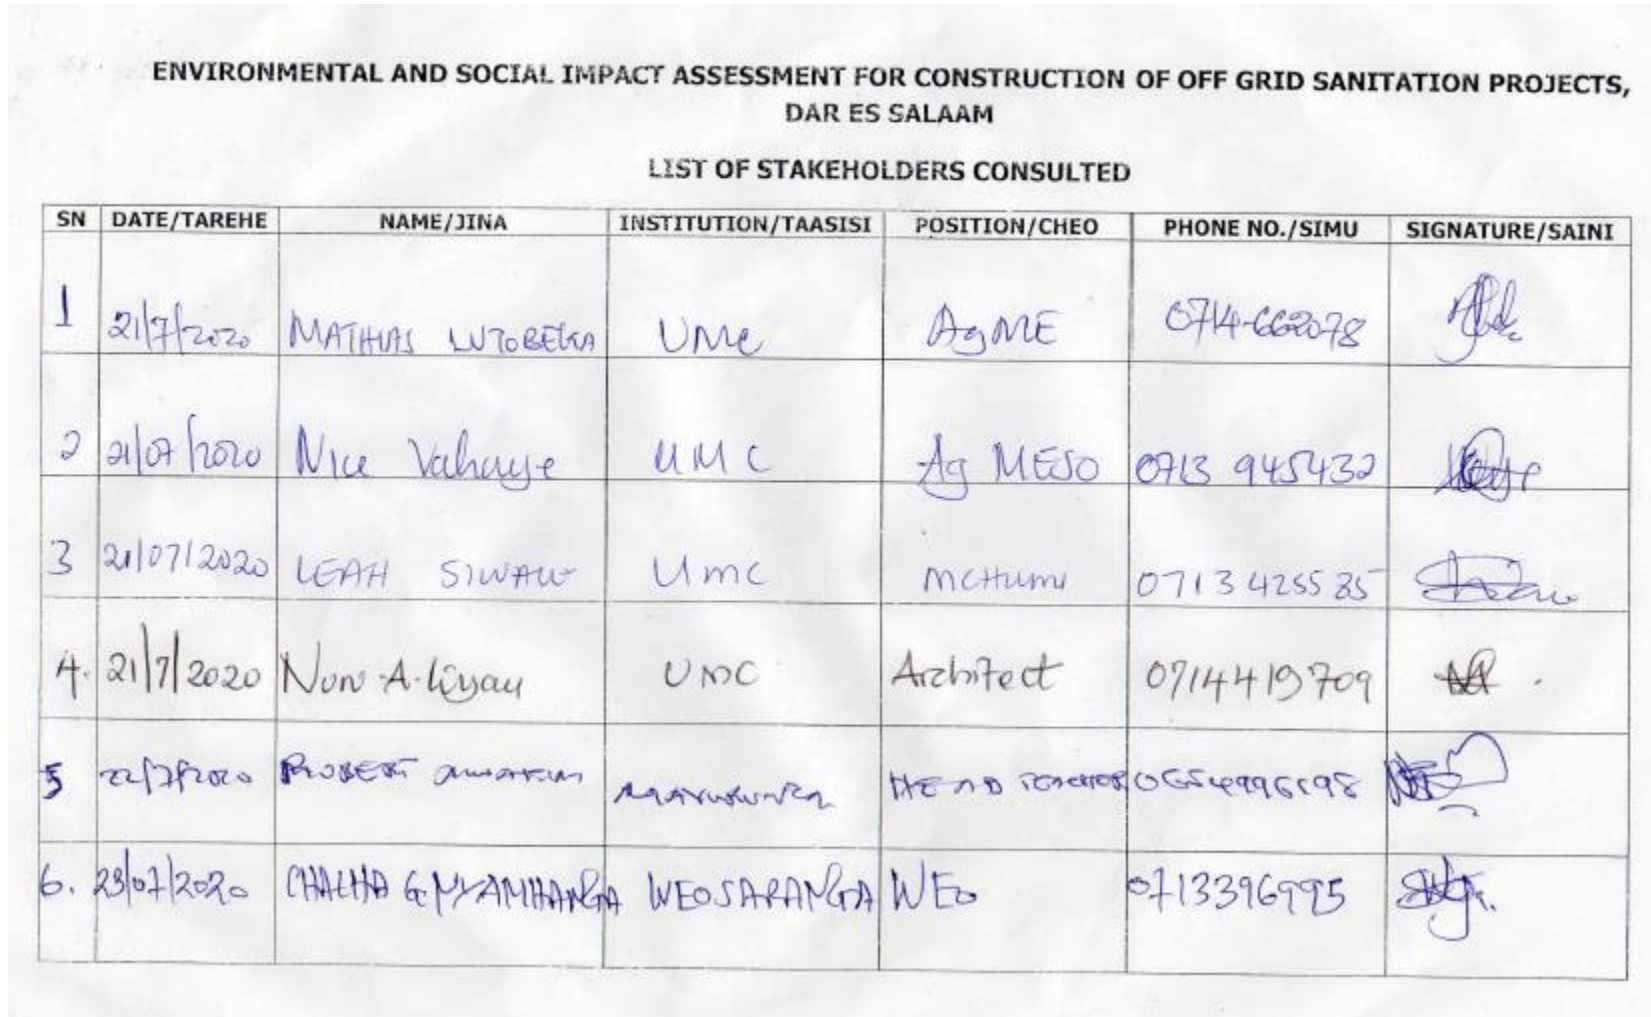 ENVIRONMENTAL AND SOCIAL IMPACT ASSESSMENT FOR CONSTRUCTION OF OFF GRID SANITATION PROJECTS,
DAR ES SALAAM
LIST OF STAKEHOLDERS CONSULTED
SN DATE/TAREHE NAME/JINA INSTITUTION/TAASISI POSITION/CHEO PHONE NO./SIMU SIGNATURE/SAINI
1 21/7/2020 MATHIAS UMC AgME 0714-662078
2 21/07/2020 Nice Vahaye UMC Ag MESO 0713 945432
3 21/07/2020 LEAH UMC MCHUMI 0713 425535
4. 21/7/2020 UMC Architect 0714419709
5 22/7/2020 ROBERT HEAD TEACHER
6. 23/07/2020 CHACHA G. NYAMHANGA WEO SARANGA WEO 0713396995